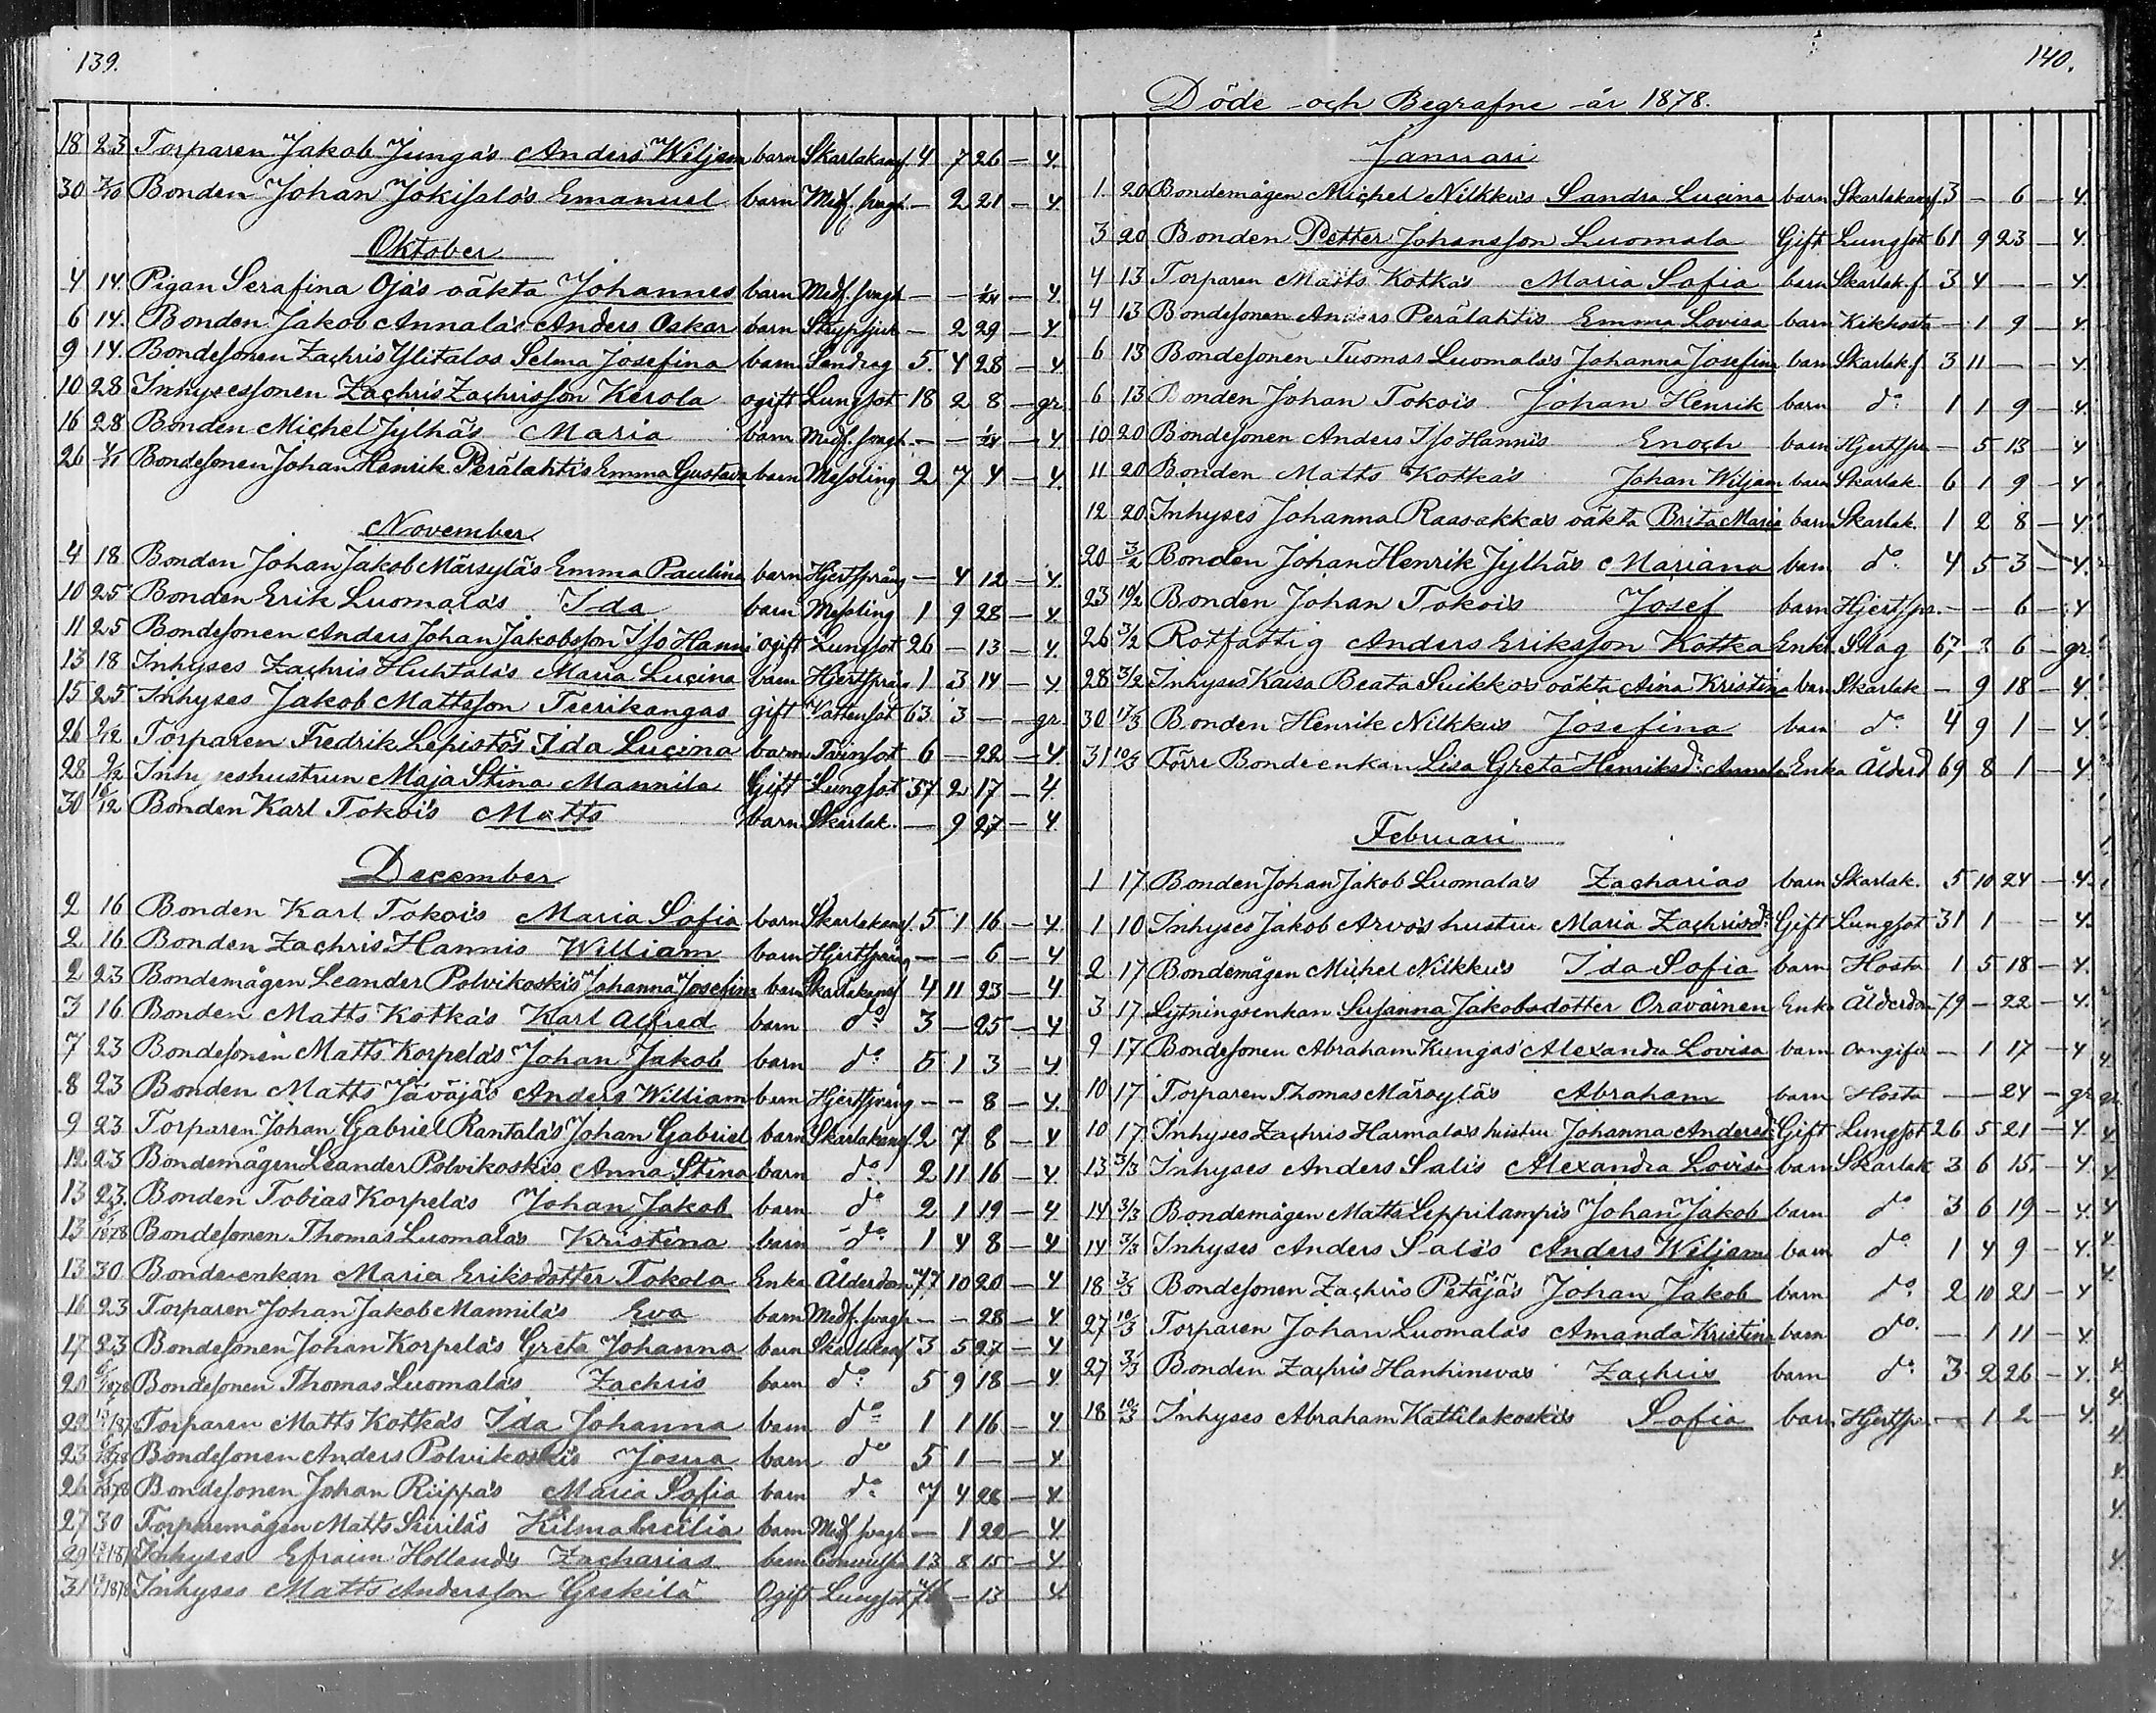 139.
18 23 Torparen Jakob Junga's Anders Wiljam barn Skarlakansf 4 7 26 — 4.
30 7/10 Bonden Johan Jokisalo's Emanuel barn Medf. svagh. — 2 21 — 4
Oktober
4 14. Pigan Serafina Oja's oäkta Johannes barn Medf. svagh — — 1/24 — 4
6 14. Bonden Jakob Annala's Anders Oskar barn Strypsjuk — 2 29 — 4.
9 14. Bondesonen Zachris Ylitalos Selma Josefina barn Sendrag 5. 4 28 — 4
10 28 Inhysessonen Zachris Zachrisson Kerola ogift Lungsot 18 2 8 — gr.
16 28 Bonden Michel Jylhä's Maria barn Medf. svagh. — — 1/24 — 4.
26 4/11 Bondesonen Johan Henrik Perälahti's Emma Gustava barn Messling 2 7 4 — 4.
November
4 18 Bonden Johan Jakob Märsylä's Emma Paulina barn Hjertspräng — 4 12 — 4.
10 25 Bonden Erik Luomala's Ida barn Messling 1 9 28 — 4
11 25 Bondesonen Anders Johan Jakobsson Iso Hanni ogift Lungsot 26 — 13 — 4.
13 18 Inhyses Zachris Huhtala's Maria Lucina barn Hjertsprän 1 3 14 — 4
15 25 Inhyses Jakob Mattsson Tierikangas gift Vattensot 63 3 — — gr.
26 2/12 Torparen Fredrik Lepistö's Ida Lucina barn Tvinsot 6 — 22 — 4
28 9/12 Inhyseshustrun Maja Stina Mannila Gift Lungsot 57 2 17 — 4.
30 16/12 Bonden Karl Tokoi's Matts barn Skarlak. — 9 27 — 4.
December
2 16 Bonden Karl Tokoi's Maria Sofia barn Skarlakansf. 5 1 16 — 4.
2 16 Bonden Zachris Hannis William barn Hjertspräng — — 6 — 4
2 23 Bondemågen Leander Polvikoski's Johanna Josefina barn Skarlakansf 4 11 23 — 4
3 16 Bonden Matts Kotka's Karl Alfred barn do 3 — 25 — 4
7 23 Bondesonen Matts Korpela's Johan Jakob barn do 5 1 3 — 4
8 23 Bonden Matts Jäväjä's Anders William barn Hjertspräng — — 8 — 4.
9 23 Torparen Johan Gabriel Rantala's Johan Gabriel barn Skarlakansf 2 7 8 — 4
12 23 Bondemågen Leander Polvikoskis Anna Stina barn do 2 11 16 — 4.
13 23. Bonden Tobias Korpela's Johan Jakob barn do 2 1 19 — 4
13 Bondesonen Thomas Luomala's Kristina barn do 1 4 8 — 4
13 30 Bondeenkan Maria Eriksdotter Tokola Enka Ålderdom 77 10 20 — 4
16 23 Torparen Johan Jakob Mannila's Eva barn Medf. svagh — — 28 — 4
17 23 Bondesonen Johan Korpela's Greta Johanna barn Skarlakansf 3 5 27 — 4
20 Bondesonen Thomas Luomala's Zachris barn do 5 9 18 — 4
22 Torparen Matts Kotka's Ida Johanna barn do 1 1 16 — 4
23 Bondesonen Anders Polvikoski's Josua barn do 5 1 — — 4
26 Bondesonen Johan Riippa's Maria Sofia barn do 7 4 28 — 4.
27 30 Torparemågen Matts Siirilä's Hilma Cecilia barn Medf. svagh — 1 22 — 4.
29 Inhyses Efraim Hollands Zacharias barn 13 8 15 — 4.
31 Inhyses Matts Andersson Grekilä Ogift Lungsot — 13 4.
140.
Döde och Begrafne år 1878.
Januari
1. 20 Bondemågen Michel Nilkku's Sandra Lucina barn Skarlakansf. 3 — 6 — 4.
3 20 Bonden Petter Johansson Luomala Gift Lungsot 61 9 23 — 4.
4 13 Torparen Matts Kotka's Maria Sofia barn Skarlak. f 3 4 — — 4
4 13 Bondesonen Anders Perälahtis Emma Lovisa barn Kikhosta — 1 9 — 4
6 13 Bondesonen Tuomas Luomala's Johanna Josefina barn Skarlak. f 3 11 — — 4
6 13 Bonden Johan Tokoi's Johan Henrik barn do 1 1 9 — 4.
10 20 Bondesonen Anders Iso Hanni's Enoch barn Hjertspr — 5 13 — 4
11 20 Bonden Matts Kotka's Johan Wiljam barn Skarlak. 6 1 9 — 4
12 20 Inhyses Johanna Raasakka's oäkta Brita Maria barn Skarlak. 1 2 8 — 4.
20 3/2 Bonden Johan Henrik Jylhä's Mariana barn do 4 5 3 — 4.
23 10/2 Bonden Johan Tokoi's Josef barn Hjertspr. — — 6 — 4
26 3/2 Rotfattig Anders Eriksson Kotka Enkl. Slag 67 6 — gr.
28 3/2 Inhyses Kaisa Beata Suikko's oäkta Aina Kristina barn Skarlak — 9 18 — 4.
30 17/3 Bonden Henrik Nilkku's Josefina barn do 4 9 1 — 4.
31 10/3 Förre Bondeenkan Lisa Greta Henriksdr Annala Enka Ålderd 69 8 1 — 4
Februari
1 17 Bonden Johan Jakob Luomala's Zacharias barn Skarlak. 5 10 24 — 4.
1 10 Inhyses Jakob Arvo's hustru Maria Zachrisdr Gift Lungsot 31 1 — — 4.
2 17 Bondemågen Michel Nilkku's Ida Sofia barn Hosta 1 5 18 — 4.
3 17 Lytningsenkan Susanna Jakobsdotter Oravainen Enka Ålderdom 79 — 22 — 4.
9 17 Bondesonen Abraham Kungas' Alexandra Lovisa barn oangifv — 1 17 — 4
10 17 Torparen Thomas Märsylä's Abraham barn Hosta — — 24 — gr
10 17 Inhyses Zachris Harmala's hustru Johanna Andersdr Gift Lungsot 26 5 21 — 4.
13 3/3 Inhyses Anders Salis Alexandra Lovisa barn Skarlak 3 6 15 — 4.
14 3/3 Bondemågen Matts Leppilampi's Johan Jakob barn do 3 6 19 — 4.
14 3/3 Inhyses Anders Salis Anders Wiljam barn do 1 4 9 — 4.
18 3/3 Bondesonen Zachris Petäjä's Johan Jakob barn do 2 10 21 — 4
27 10/3 Torparen Johan Luomala's Amanda Kristina barn do — 1 11 — 4.
27 3/3 Bonden Zachris Hanhineva's Zachris barn do 3 2 26 — 4.
18 10/3 Inhyses Abraham Kattilakoski's Sofia barn Hjertspr — 1 2 — 4.